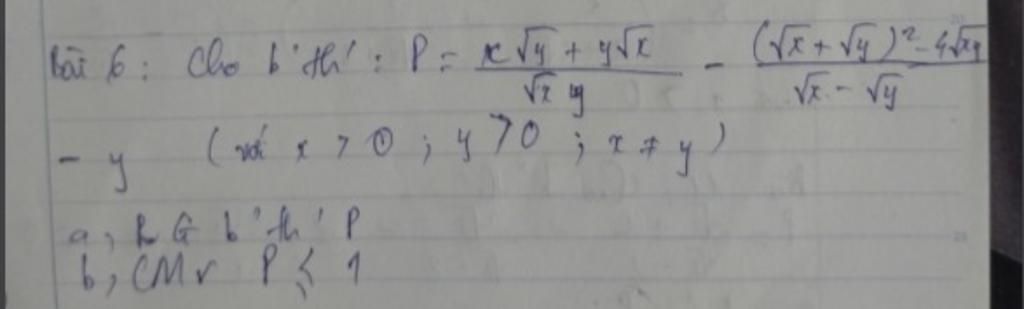 Bài 6 : Cho b'th' : P = \frac{x\sqrt{y} + y\sqrt{x}}{\sqrt{xy}} - \frac{(\sqrt{x} + \sqrt{y})^2 - 4\sqrt{xy}}{\sqrt{x} - \sqrt{y}}
- y ( với x > 0 ; y > 0 ; x ≠ y )
a, RG b'th' P
b, CMr P ≤ 1